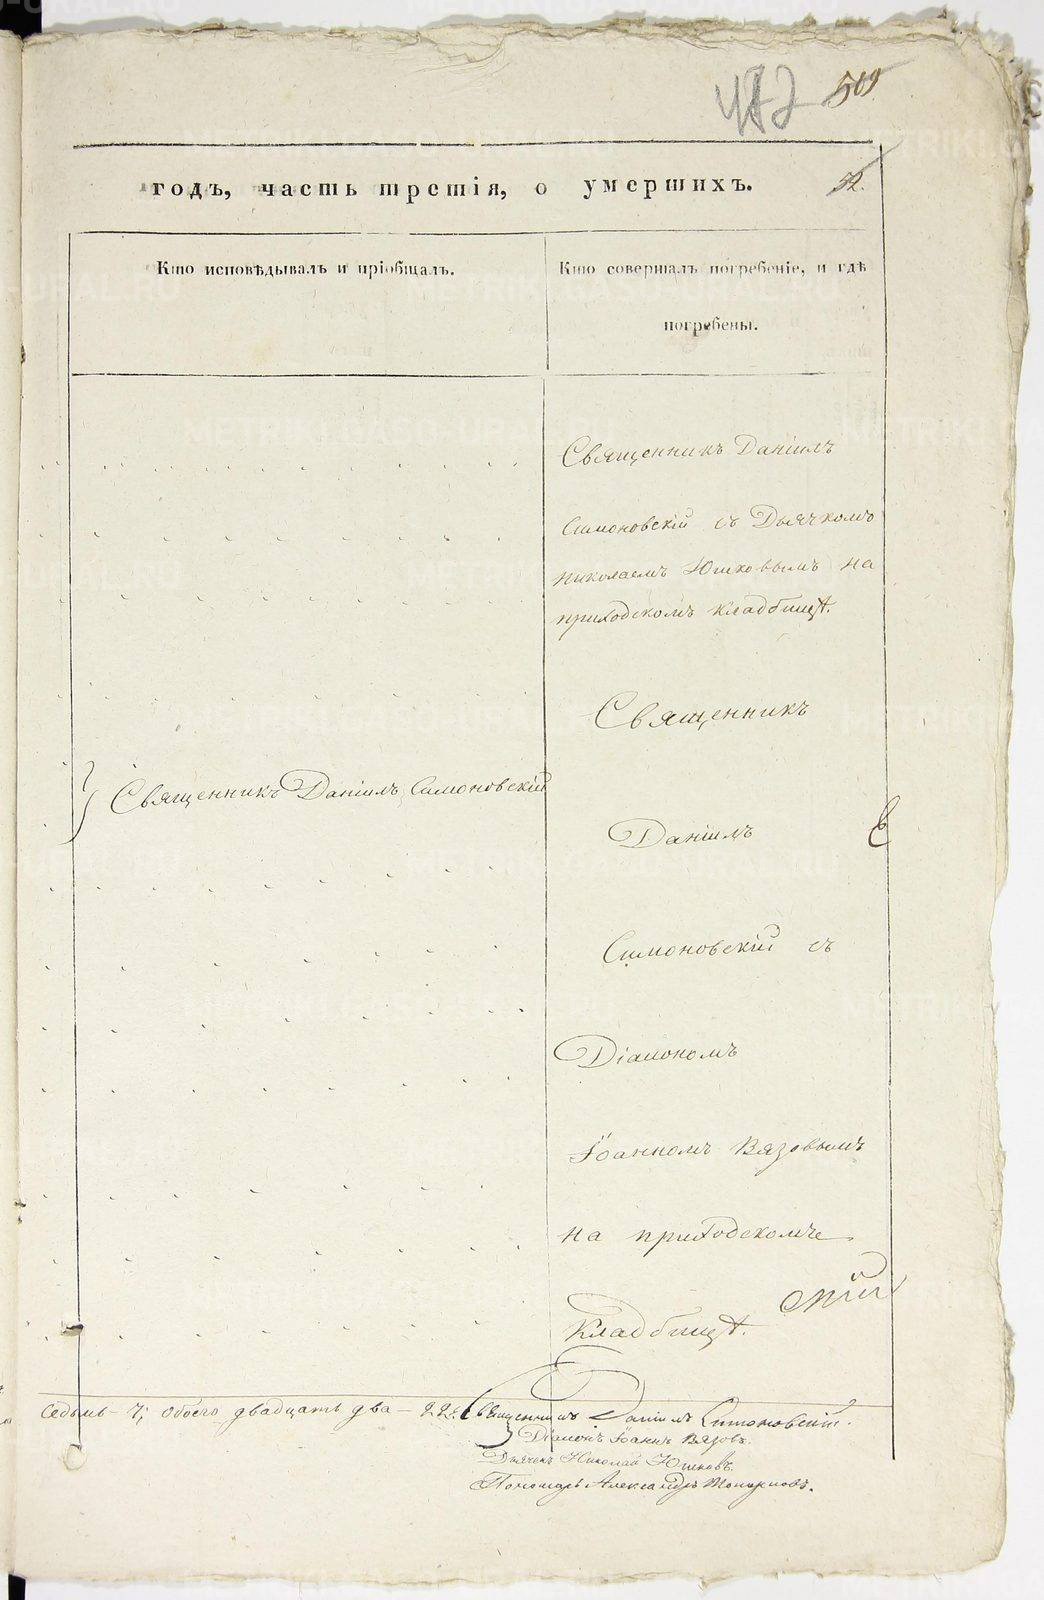 472 509
годъ, часть третія, о умершихъ. 52.
Кто исповѣдывалъ и пріобщалъ.
Кто совершалъ погребеніе, и гдѣ
погребены.
Священникъ Даніилъ
Симоновскій съ Дьячкомъ
Николаемъ Юшковымъ на
приходскомъ кладбищѣ.
Священникъ Даніилъ Симоновскій
Священникъ
Даніилъ
Симоновскій съ
Діакономъ
Іоанномъ Вязовымъ
на приходскомъ
кладбищѣ.
седьмь - 7; обоего двадцать два - 22. Священникъ Даніилъ Симоновскій.
Діаконъ Іоаннъ Вязовъ.
Дьячекъ Николай Юшковъ.
Пономарь Александръ Топорковъ.
METRIKI.GASO-URAL.RU